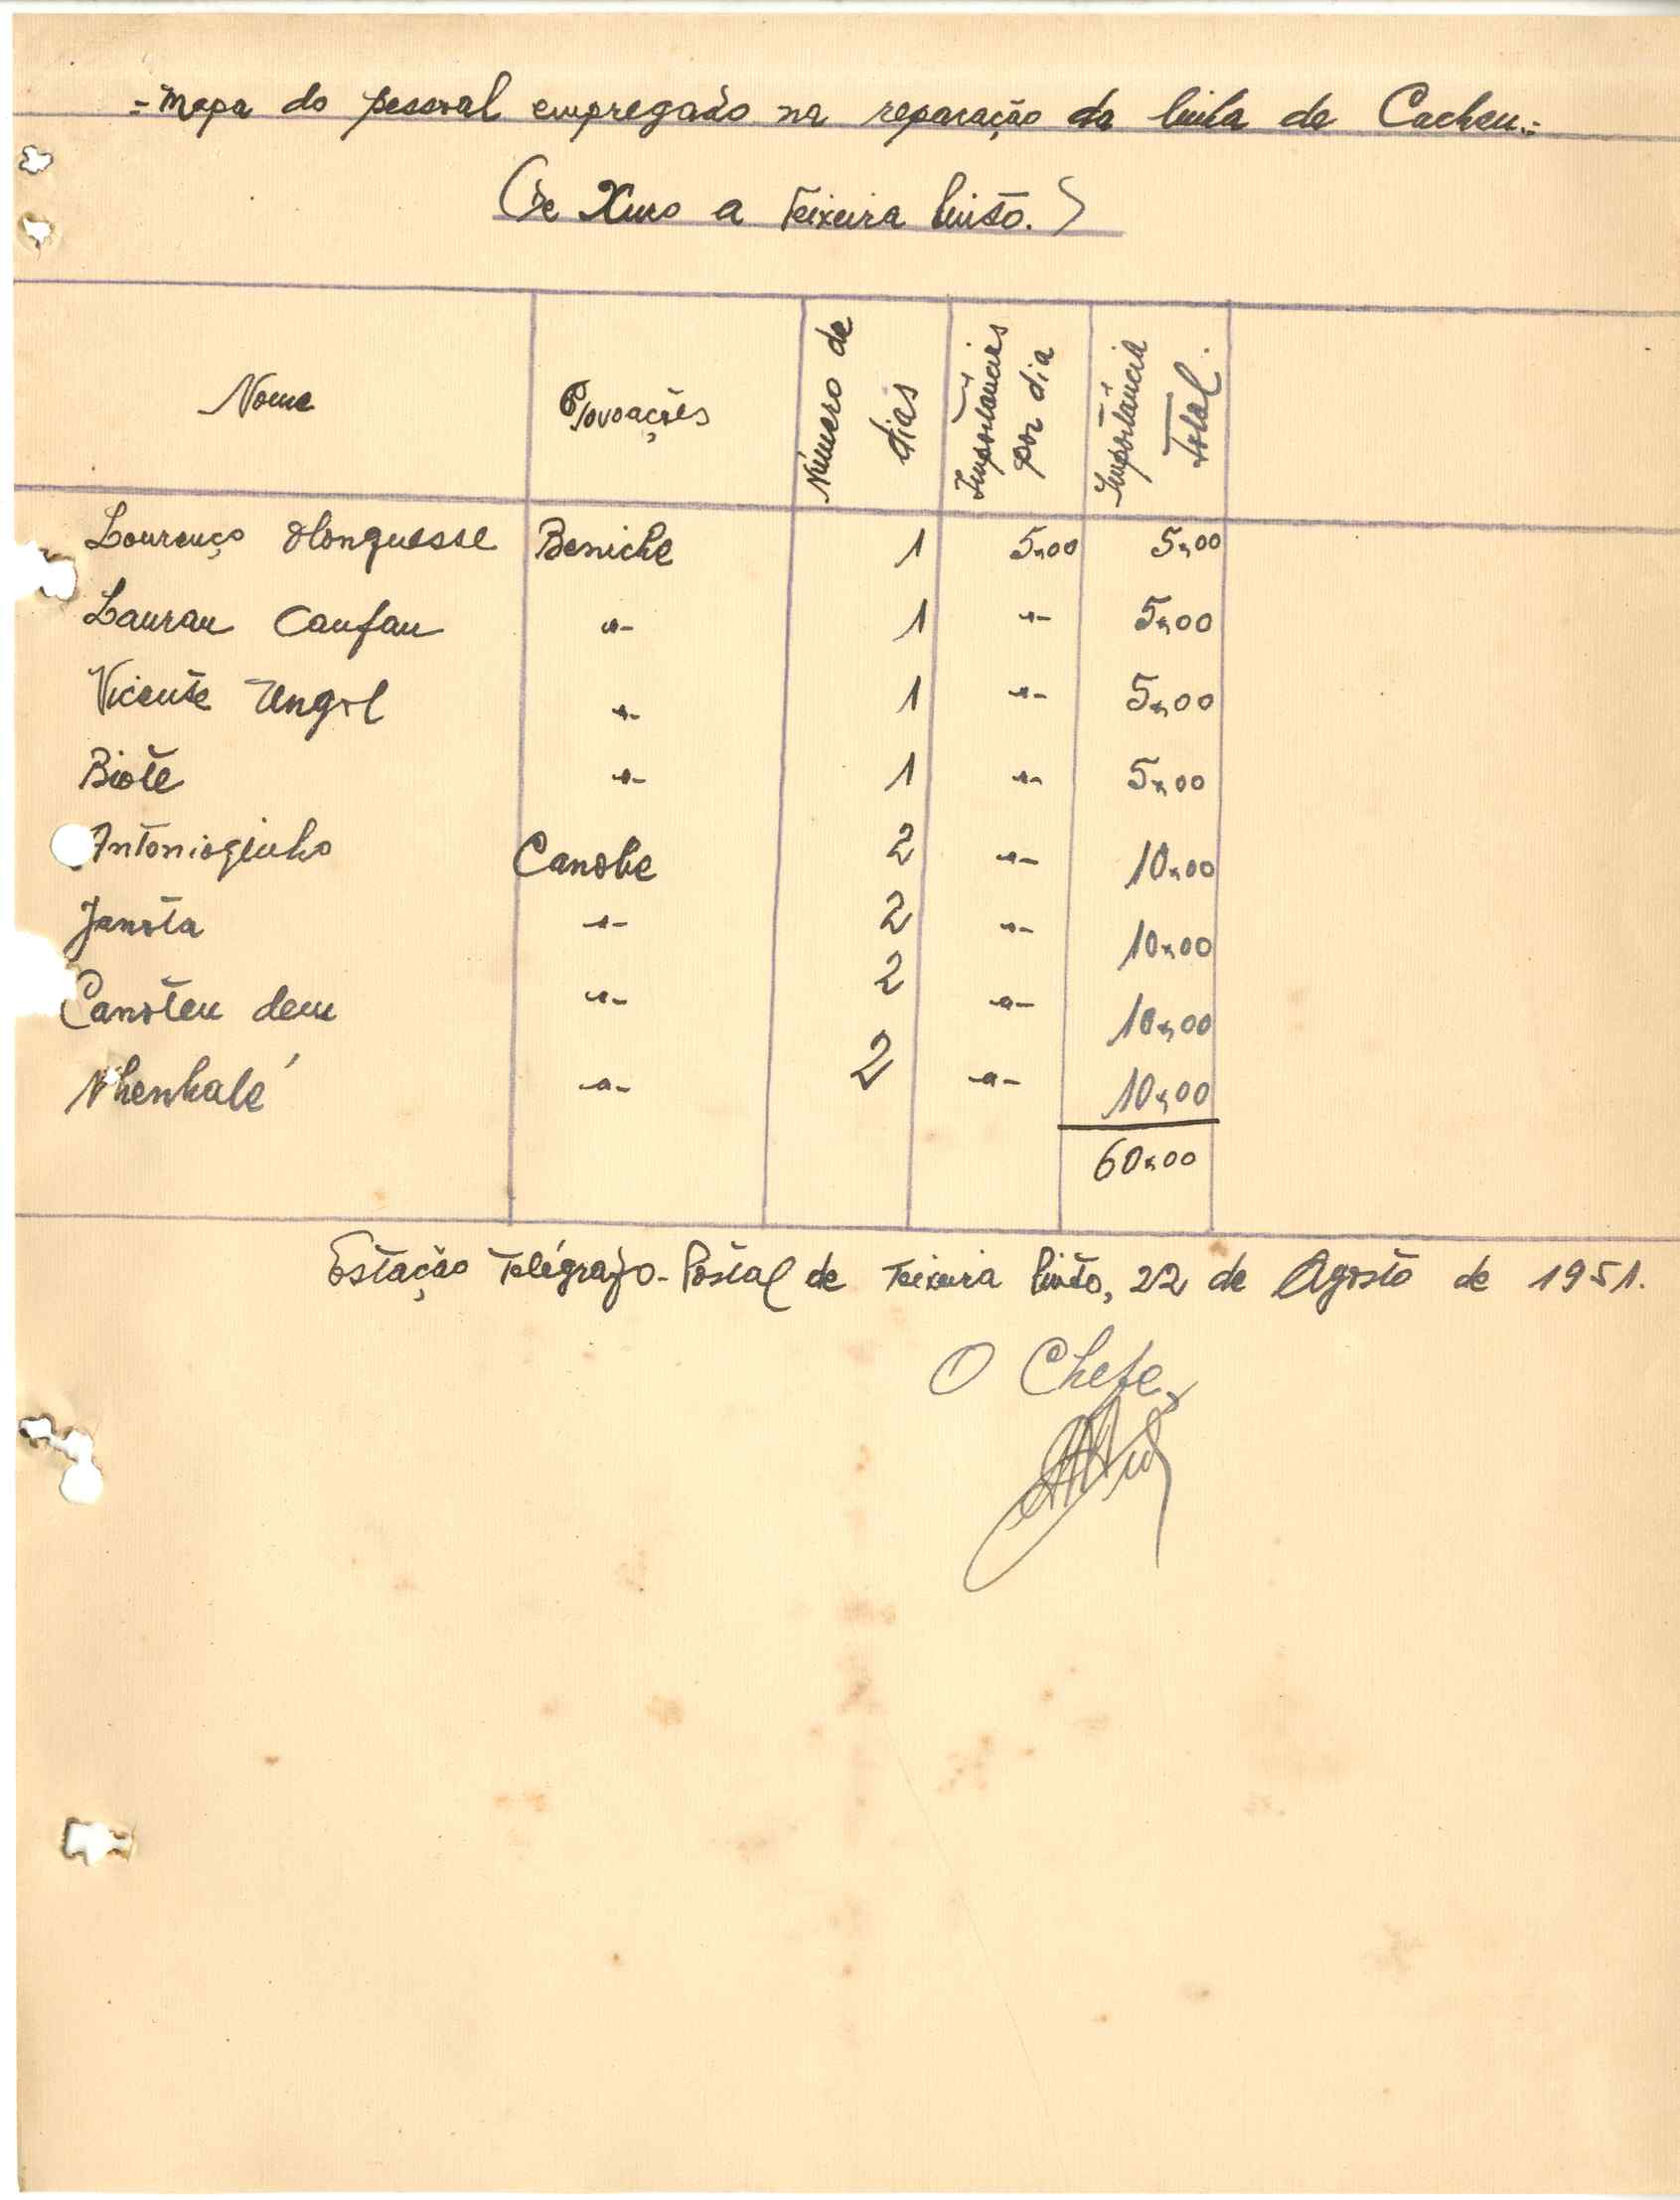 =Mapa do pessoal empregado na reparação da linha de Cacheu.=
(de Xuro a Teixeira Pinto.)
Nome Povoações Número de dias Importâncias por dia Importância total.
Lourenço Honguesse Beniche 1 5,00 5,00
Laurau Caufau "- 1 "- 5,00
Vicente Ungol "- 1 "- 5,00
Biote "- 1 "- 5,00
Antonioginho Canobe 2 "- 10,00
Janota "- 2 "- 10,00
Canoteu dem "- 2 "- 10,00
Nhenhalé "- 2 "- 10,00
60,00
Estação Telégrafo-Postal de Teixeira Pinto, 22 de Agosto de 1951.
O Chefe,